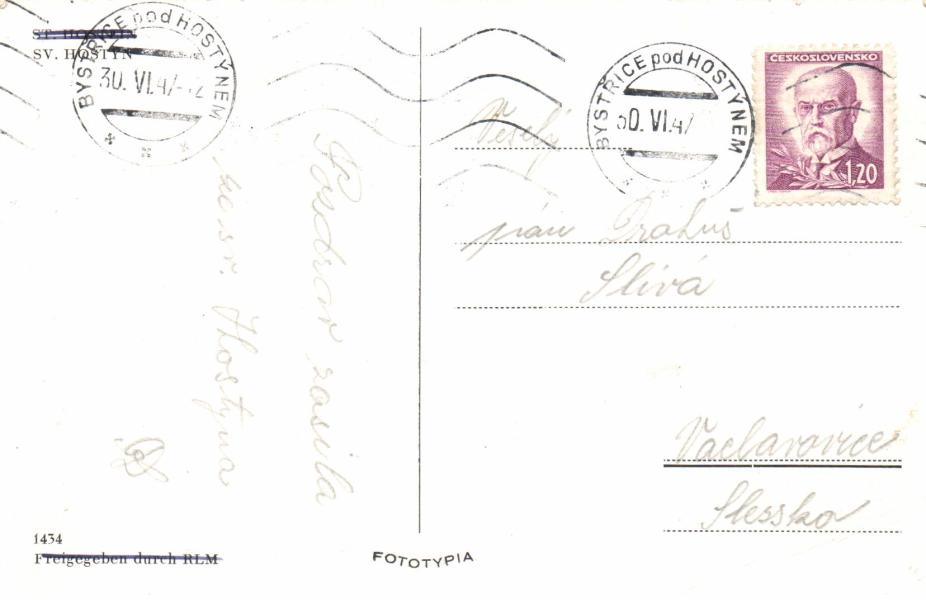 ST. HOSTEIN
SV. HOSTÝN
BYSTŘICE pod HOSTÝNEM
30. VI. 47-12
BYSTŘICE pod HOSTÝNEM
30. VI. 47
ČESKOSLOVENSKO
1,20
Veselý
pan
Slivá
Václavovice
Slessko
Pozdrav zasílá
Hostýna
1434
Freigegeben durch RLM
FOTOTYPIA